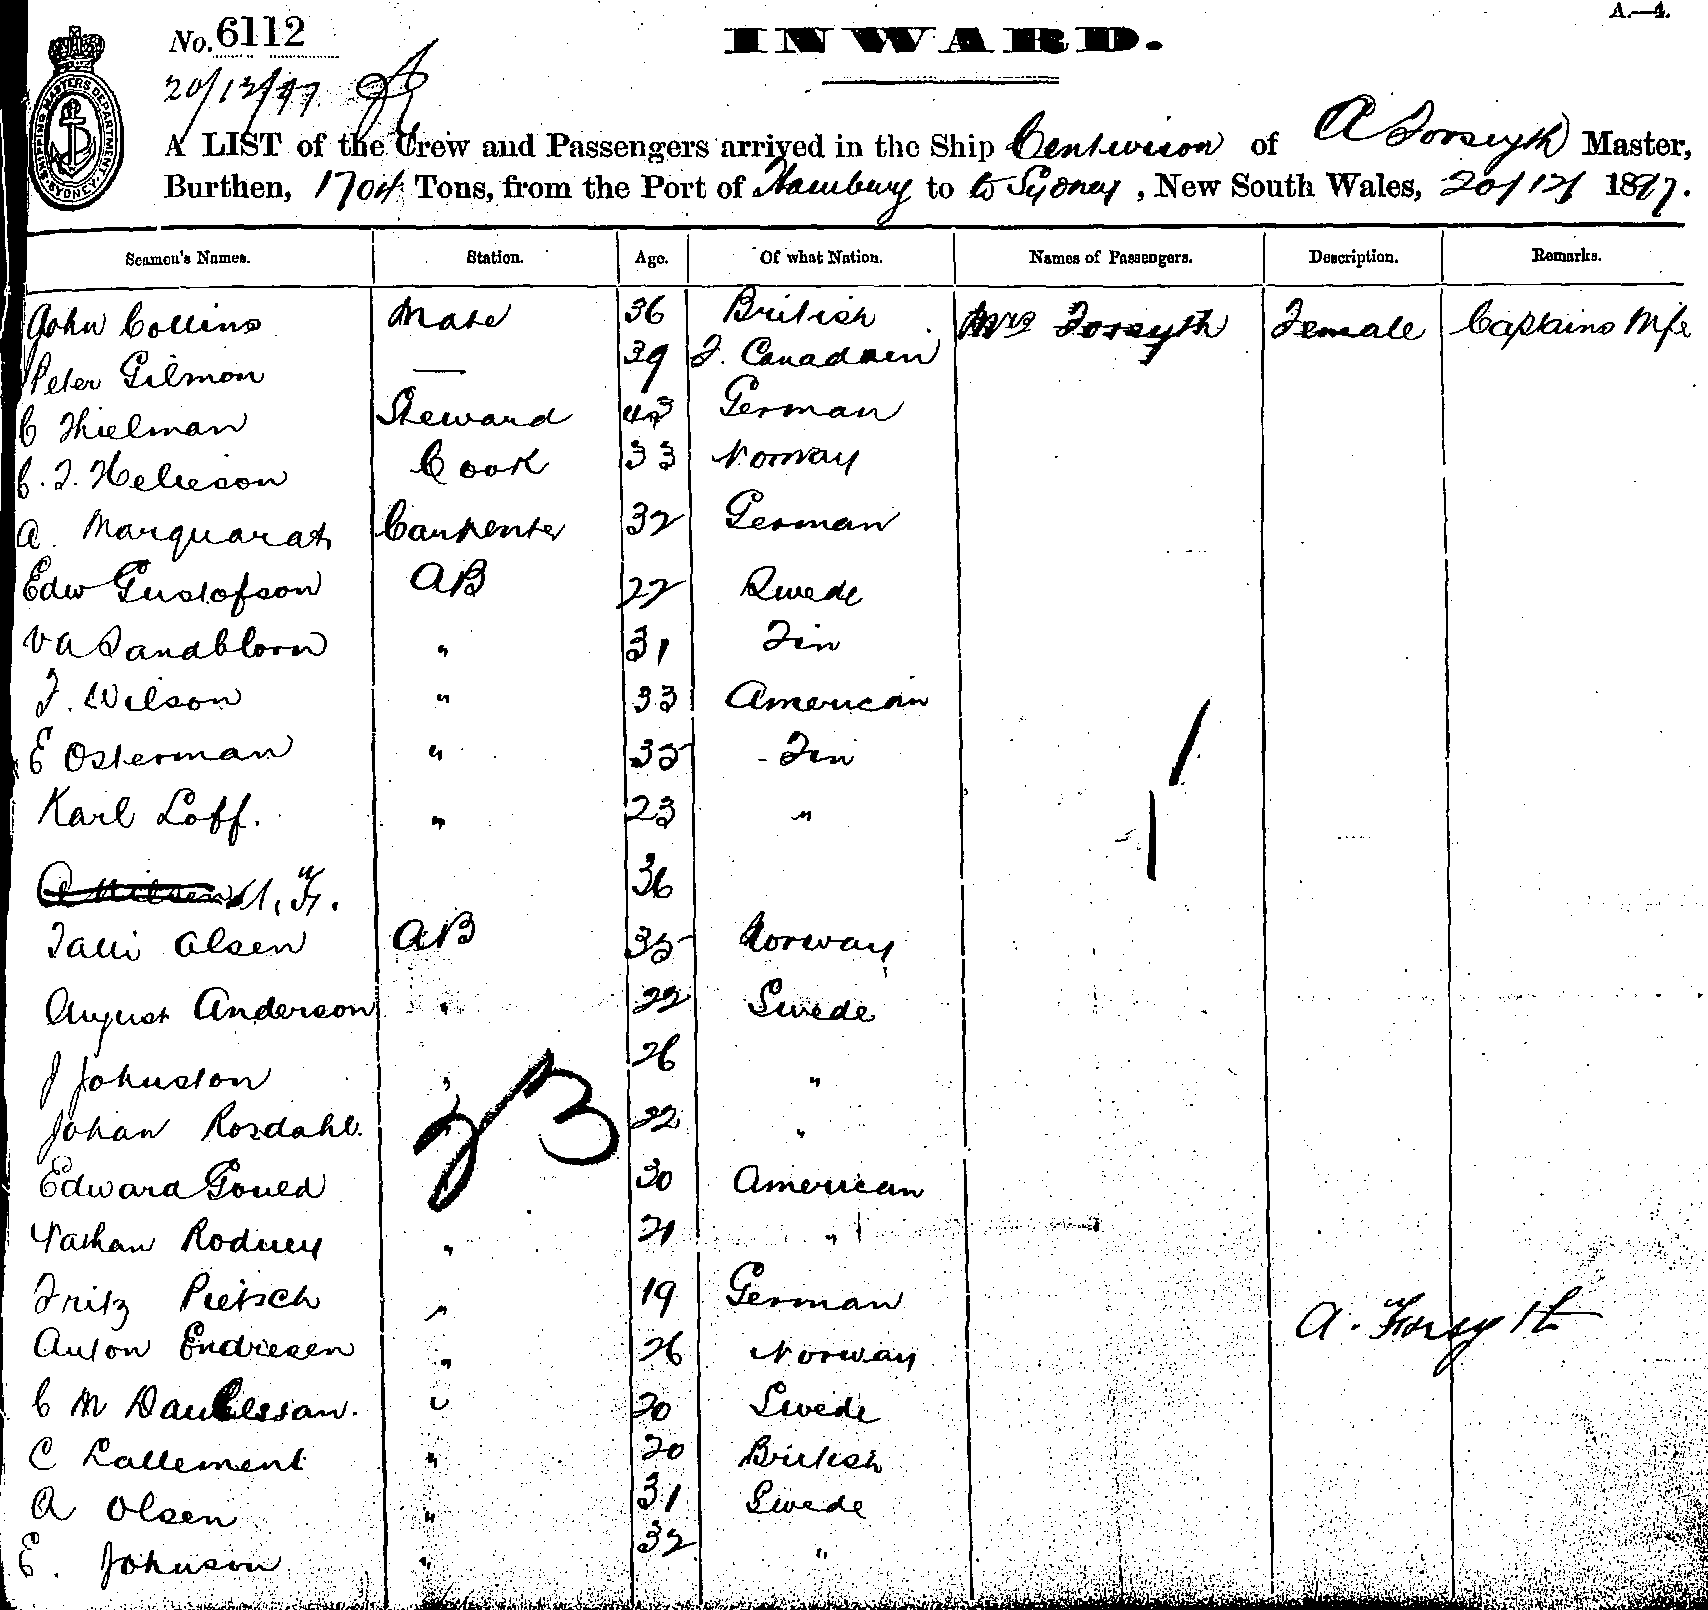 A.—4.
No. 6112
INWARD.
20/12/97
SHIPPING MASTERS DEPARTMENT
SYDNEY
A LIST of the Crew and Passengers arrived in the Ship Centurion of A Forsyth Master,
Burthen, 1704 Tons, from the Port of Hamburg to to Sydney, New South Wales, 20/12/ 1897.
Seamen's Names. Station. Age. Of what Nation. Names of Passengers. Description. Remarks.
John Collins Mate 36 British Mrs Forsyth Female Captains Wife
Peter Gilmon — 39 F. Canadaen
C Thielman Steward 43 German
C. F. Helieson Cook 33 Norway
A. Marquarat Carpenter 32 German
Edw Gustofson AB 22 Swede
V A Sandblom " 31 Fin
F. Wilson " 33 American
E Osterman " 35 Fin
Karl Loff. " 23 "
A Nilsen 36
Olsen AB 35 Norway
August Anderson " 22 Swede
J Johnston " 26 "
Johan Rosdahl. 22 "
23
Edward Gould 30 American
Nathan Rodney " 21 "
Fritz Pietsch " 19 German
A. Forsyth
Anton Endresen " 26 Norway
C M 20 Swede
C Lallement " 20 British
A Olsen " 31 Swede
E. Johnson " 32 "